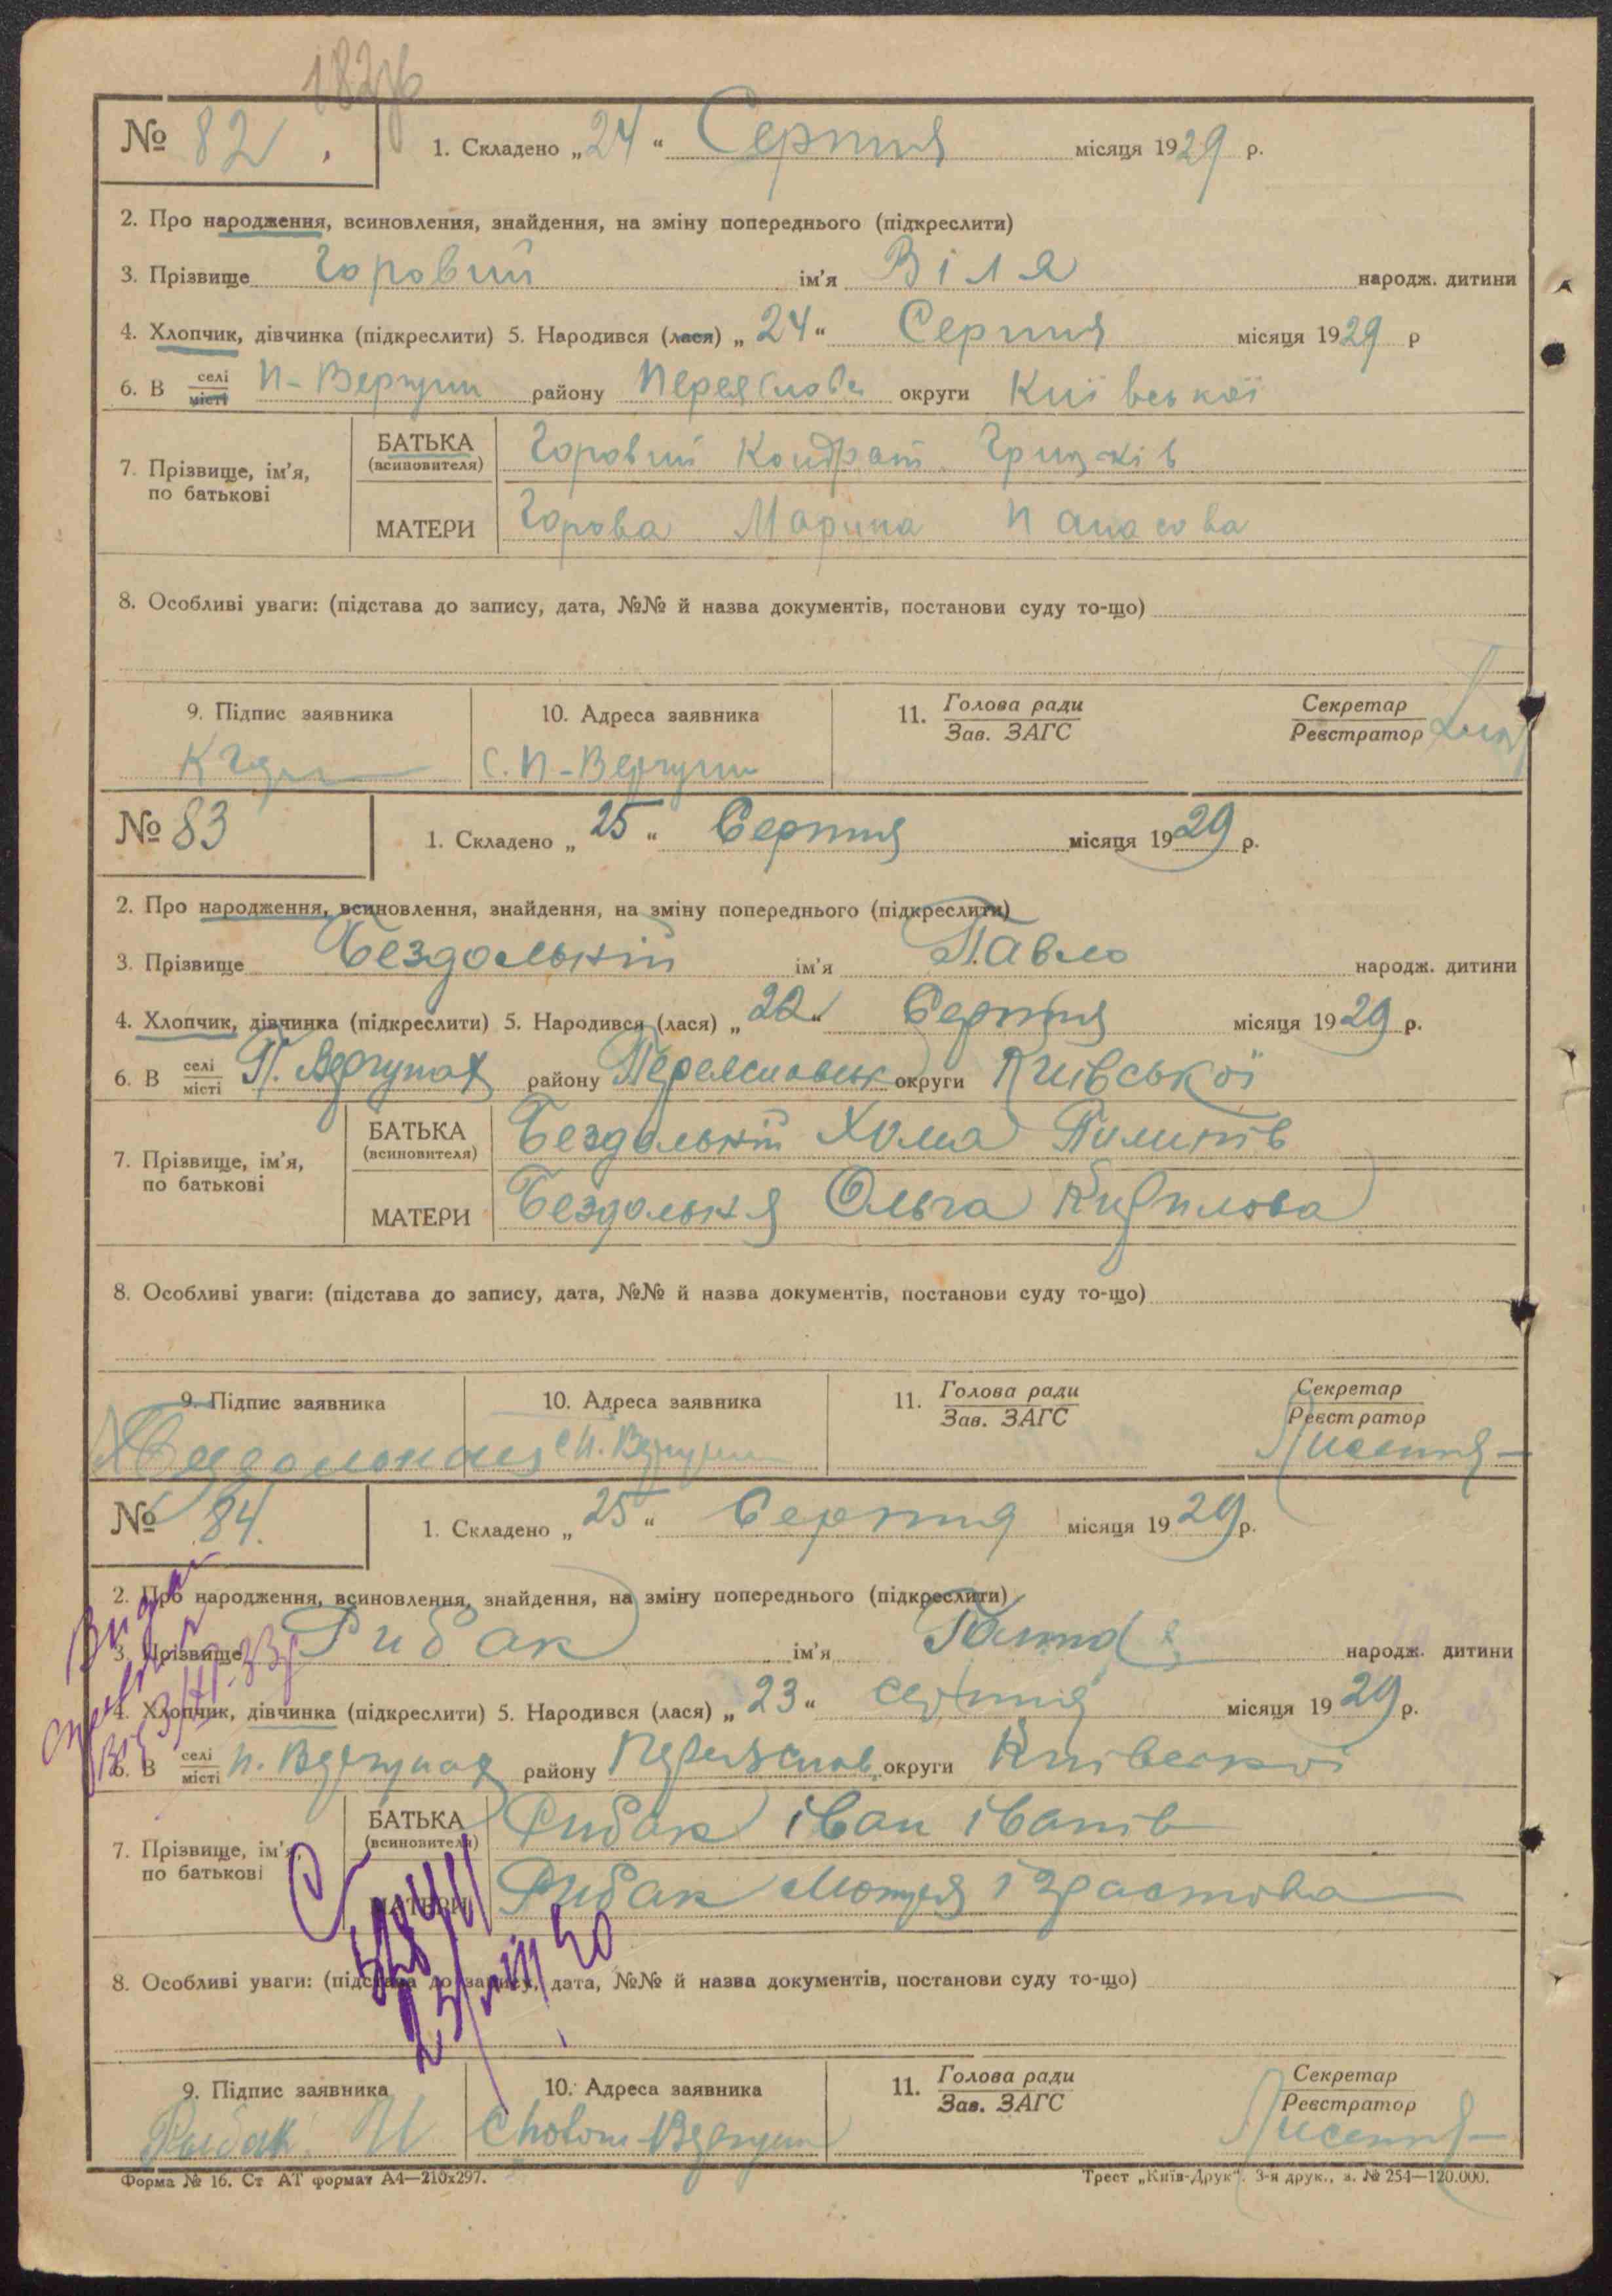 182зв
№ 82. 1. Складено „24“ Серпня місяця 1929 р.
2. Про народження, всиновлення, знайдення, на зміну попереднього (підкреслити)
3. Прізвище Горовий ім'я Віля народж. дитини
4. Хлопчик, дівчинка (підкреслити) 5. Народився (лася) „24“ Серпня місяця 1929 р
6. В селі місті П-Вергуни району Переяслове округи Київської
7. Прізвище, ім'я, по батькові
БАТЬКА (всиновителя) Горовий Кондрат Грицків
МАТЕРИ Горова Марина Панасова
8. Особливі уваги: (підстава до запису, дата, №№ й назва документів, постанови суду то-що)
9. Підпис заявника 10. Адреса заявника 11. Голова ради Зав. ЗАГС Секретар Реєстратор
С. П-Вергуни
№ 83 1. Складено „25“ Серпня місяця 1929 р.
2. Про народження, всиновлення, знайдення, на зміну попереднього (підкреслити)
3. Прізвище Бездольній ім'я Павло народж. дитини
4. Хлопчик, дівчинка (підкреслити) 5. Народився (лася) „22“ Серпня місяця 1929 р.
6. В селі місті П. Вергунах району Переяславськ округи Київської
7. Прізвище, ім'я, по батькові
БАТЬКА (всиновителя) Бездольній Хома Пилипів
МАТЕРИ Бездольня Ольга Кирилова
8. Особливі уваги: (підстава до запису, дата, №№ й назва документів, постанови суду то-що)
9. Підпис заявника 10. Адреса заявника 11. Голова ради Зав. ЗАГС Секретар Реєстратор
с П. Вергуни
№ 84. 1. Складено „25“ Серпня місяця 1929 р.
2. Про народження, всиновлення, знайдення, на зміну попереднього (підкреслити)
3. Прізвище Рибак ім'я Ганна народж. дитини
4. Хлопчик, дівчинка (підкреслити) 5. Народився (лася) „23“ серпня місяця 1929 р.
6. В селі місті П. Вергунах району Переяслов. округи Київської
7. Прізвище, ім'я, по батькові
БАТЬКА (всиновителя) Рибак іван іванів
МАТЕРИ Рибак Мотря
8. Особливі уваги: (підстава до запису, дата, №№ й назва документів, постанови суду то-що)
9. Підпис заявника 10. Адреса заявника 11. Голова ради Зав. ЗАГС Секретар Реєстратор
Рыбак И
Форма № 16. Ст АТ формат А4—210х297. Трест „Київ-Друк“. 3-я друк., з. № 254—120.000.